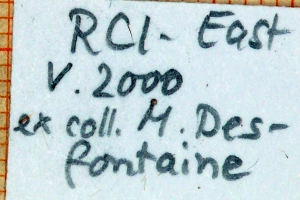 RCI- East
V. 2000
ex coll. M. Des-
fontaine